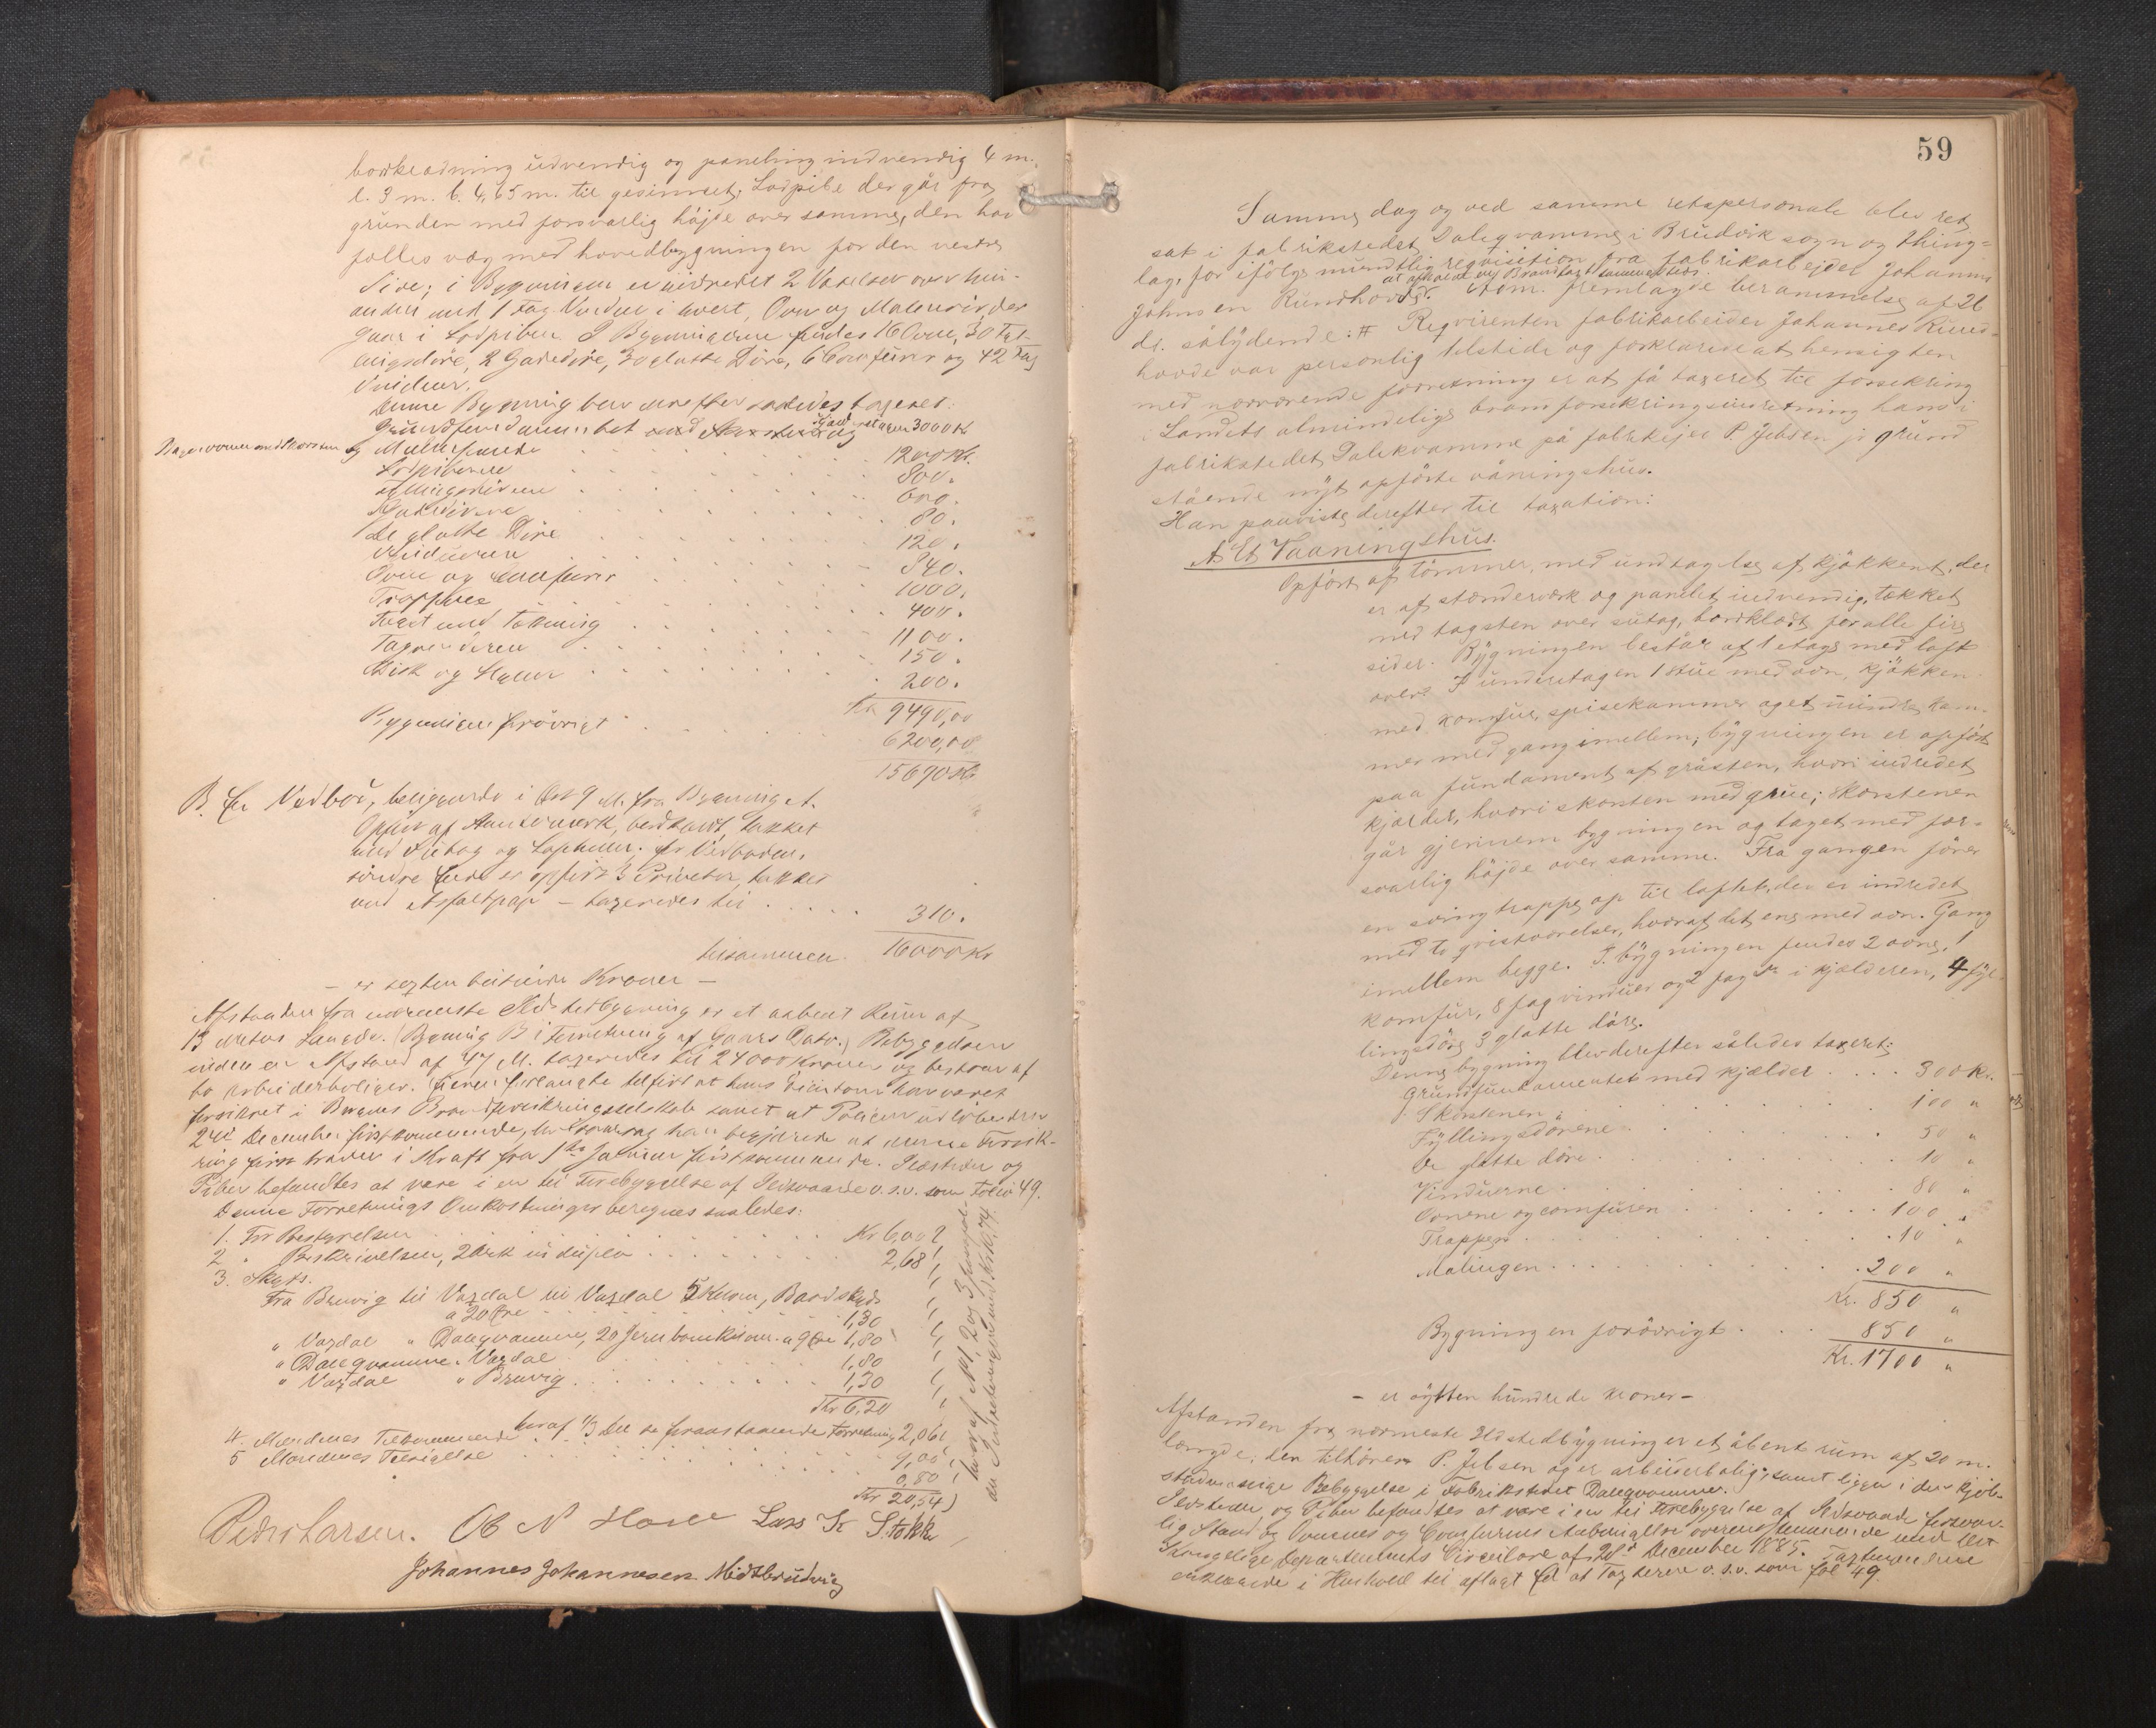 bordklædning udvendig og paneling indvendig 4 m.
l. 3 m. b. 4,65 m. til gesimset; Lodpibe der går fra
grunden med forsvarlig höjde over samme, den har
fælles væg med hovedbygningen for den vestre
Side; i Bygningen er indredet 2 Værelser over hin-
anden med 1 Fag Vinduer i hvert, Ovn og
gaar i Lodpiben. I Bygningerne findes 16 Ovne, 30 Fyl-
lingsdöre, 2 Gadedöre, 30 glatte Döre, 6 Comfurer og 42 Fag
Vinduer.
Denne Bygning blev derefter saaledes taxeret:
Grundfundamentet 3000 Kr
og Murene 1200 Kr.
Lodpiberne 800.
Fyllingsdörene 600.
Gadedörene 80.
De glatte Döre 120.
Vinduerne 840.
Ovne og Comfurer 1000.
Trapperne 400.
Taget med Tækning 1100.
Tagrenderen 150.
Disk og Hyller 200.
Kr 9490,00
Bygningen forövrigt 6200,00
15690 Kr
B. En Vedbod, beliggende i Öst 9 M. fra Bygning A.
Opfört af Standerværk, bordklædt, tækket
med Sutag og Lapheller. For Vedbodens
söndre Ende er opfört 3 Priveter, tækket
med Asfaltpap - taxeredes til 310.
tilsammen 16000 Kr
- er sexten tusinde Kroner -
Afstanden fra nærmeste Ildstedbygning er et aabent Rum af
13 Meters Længde. (Bygning B i Forretning af Gaars Dato.) Bebyggelsen
inden en Afstand af 47 M. taxeredes til 24000 Kroner og bestaar af
to Arbeiderboliger. Eieren forlangte tilfört at hans Eiendom har været
forsikret i Bergens Brandforsikringsselskab samt at Policen udlöber den
24de December förstkommende, hvorfor han begjærede at denne Forsik-
ring först træder i Kraft fra 1ste Januar förstkommende. Ildsteder og
Piber befandtes at være i en til Forebyggelse af Ildsvaade o.s.v. som Folio 49.
Denne Forretnings Omkostninger beregnes saaledes:
1. For Bestyrelsen Kr 6,00
2 " Beskrivelsen, 2 Ark in duplo 2,68
3. Skyds.
Fra Bruvig til Vaxdal 5 Kilom, Baadskyds
a 20 Öre 1,30
" Vaxdal " Daleqvamme, 20 Jernbanekilom. a 9 Öre 1,80
" Daleqvamme " Vaxdal 1,80
" Vaxdal " Bruvig 1,30
Kr 6,20
heraf 1/3 Del se foranstaaende Forretning 2,06
4. Mændenes Tilkommende 9,00
5 Mændenes Tilsigelse 0,80
Kr 20,54
Peder Larsen. Ob N Hare Lars K Stokke
Johannes Johannesen Midtbrudvig
59
Samme dag og ved samme retspersonale blev ret
sat i fabrikstedet Daleqvamme i Brudvik sogn og thing-
lag, for ifölge mundtlig reqvisition fra fabrikarbeider Johannes
Johnsen Rundhovde at afholde ny Brandtaxt sammesteds. Adm. fremlagde berammelse af 26
ds. sålydende: # Reqvirenten fabrikarbeider Johannes Rund-
hovde var personlig tilstede og forklarede at hensigten
med nærværende forretning er at få taxeret til forsikring
i Landets almindelige brandforsikringsindretning hans i
fabrikstedet Dalekvamme på fabrikejer P. Jebsen jr grund
stående nyt opförte våningshus.
Han paaviste derefter til taxation:
A Et Vaaningshus.
Opfört af tömmer, med undtagelse af kjökkenet, der
er af stænderværk og panelet indvendig, tækket
med tagsten over sutag, bordklædt for alle fire
sider. Bygningen består af 1 etage med loft
over. I underetagen 1 stue med ovn, kjökken
med komfur, spisekammer og et mindre kam-
mer med gang imellem; bygningen er opfört
paa fundament af gråsten, hvori indredet
kjælder, hvori skorsten med grue; skorstenen
går gjennem bygningen og taget med for-
svarlig höjde over samme. Fra gangen förer
en svingtrappe op til loftet, der er indredet
med to qvistværelser, hvoraf det ene med ovn. Gang
imellem begge. I bygningen findes 2 ovne, 1
komfur, 8 fag vinduer og 2 fag do i kjælderen, 4 fyl-
lingsdöre 3 glatte döre.
Denne bygning blev derefter således taxeret:
Grundfundamentet med kjælder 300 kr.
Skorstenen 100 "
Fyllingsdörene 50 "
De glatte döre 10 "
Vinduerne 80 "
Ovnene og comfuren 100 "
Trappen 10 "
Malingen 200 "
Kr. 850 "
Bygningen forövrigt 850 "
Kr. 1700 "
- er sytten hundrede kroner -
Afstanden fra nærmeste Ildstedbygning er et åbent rum af 20 m.
længde; den tilhörer P. Jebsen og er arbeiderbolig; samt ligger i den kjöb-
stadmæssige Bebyggelse i Fabrikstedet Daleqvamme.
Ildstæder og Piber befandtes at være i en til Forebyggelse af Ildsvaade forsvar-
lig Stand og Ovnenes og Comfurens Anbringelse overensstemmende med det
Kongelige Departements Circulære af 28de December 1885. Taxtmændene
erklærede i Henhold til aflagt Ed at Taxterne o.s.v. som fol 49.